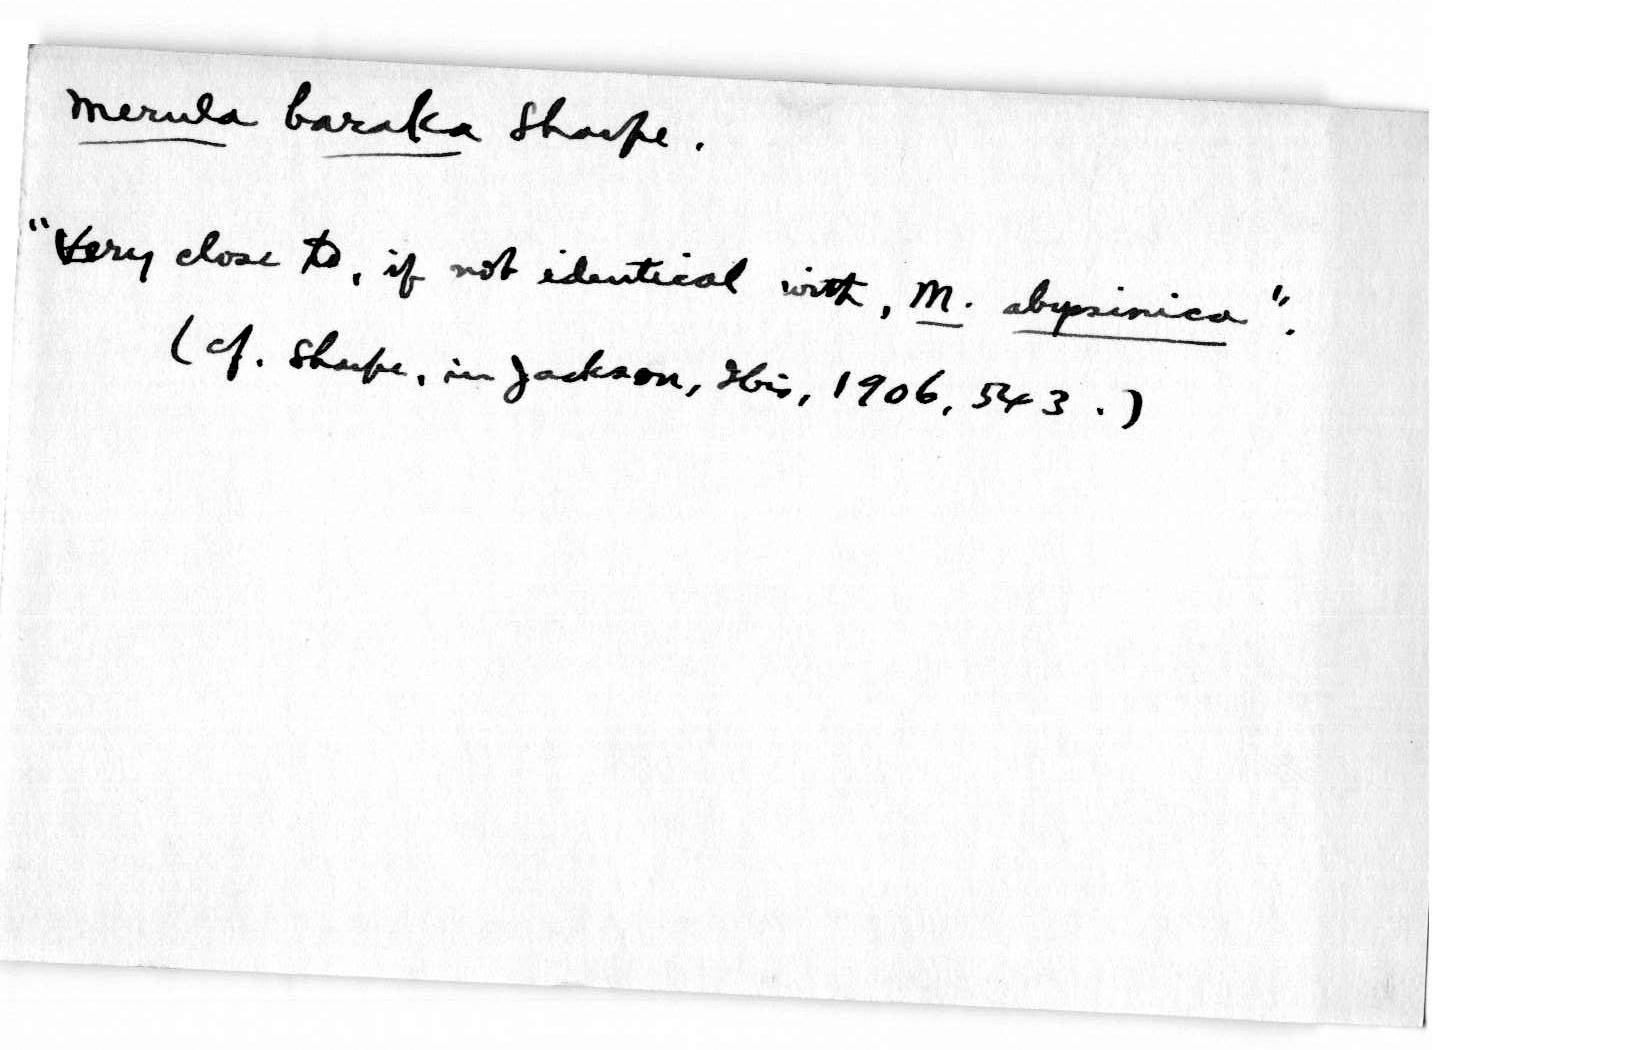 Merula baraka Sharpe.
"Very close to, if not identical with, M. abyssinica".
(cf. Sharpe, in Jackson, Ibis, 1906, 543.)